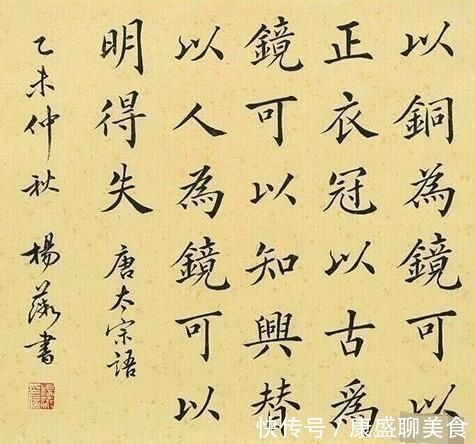 以銅為鏡可以
正衣冠以古為
鏡可以知興替
以人為鏡可以
明得失
唐太宗語
乙未仲秋 楊薇書
快传号 / 康盛聊美食